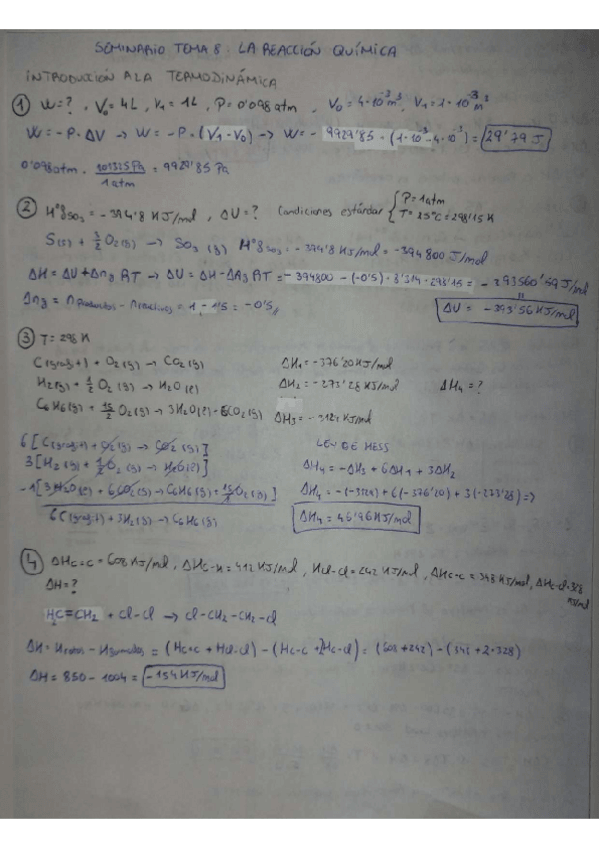 SEMINARIO TEMA 8: LA REACCIÓN QUÍMICA
INTRODUCCIÓN A LA TERMODINÁMICA
① W=? , V₀ = 4L, V₁ = 1L, P = 0'098 atm , V₀ = 4·10⁻³ m³, V₁ = 1·10⁻³ m³
W = -P·ΔV → W = -P·(V₁-V₀) → W = - 9929'85 · (1·10⁻³ - 4·10⁻³) = 29'79 J
0'098 atm · 101325 Pa / 1 atm = 9929'85 Pa
② H°f SO₃ = -394'8 KJ/mol , ΔU=? Condiciones estándar { P=1atm
T=25°C = 298'15 K
S(s) + 3/2 O₂(g) → SO₃ (g) H°f SO₃ = -394'8 KJ/mol = -394800 J/mol
ΔH = ΔU + Δng RT → ΔU = ΔH - Δng RT = -394800 - (-0'5) · 8'314 · 298'15 = -393560'59 J/mol
Δng = nproductos - nreactivos = 1 - 1'5 = -0'5 ΔU = -393'56 KJ/mol
③ T = 298 K
C(graf) + O₂(g) → CO₂(g) ΔH₁ = -376'20 KJ/mol
H₂(g) + 1/2 O₂(g) → H₂O(l) ΔH₂ = -273'28 KJ/mol ΔH₄ = ?
C₆H₆(g) + 15/2 O₂(g) → 3H₂O(l) + 6CO₂(g) ΔH₃ = -3124 KJ/mol
6[C(graf) + O₂(g) → CO₂(g)] LEY DE HESS
3[H₂(g) + 1/2 O₂(g) → H₂O(l)] ΔH₄ = -ΔH₃ + 6ΔH₁ + 3ΔH₂
-1[3H₂O(l) + 6CO₂(g) → C₆H₆(g) + 15/2 O₂(g)] ΔH₄ = -(-3124) + 6(-376'20) + 3(-273'28) =>
6C(graf) + 3H₂(g) → C₆H₆(g) ΔH₄ = 46'96 KJ/mol
④ ΔHC=C = 608 KJ/mol, ΔHC-H = 412 KJ/mol, HCl-Cl = 242 KJ/mol, ΔHC-C = 348 KJ/mol, ΔHC-Cl = 328 KJ/mol
ΔH=?
H₂C=CH₂ + Cl-Cl → Cl-CH₂-CH₂-Cl
ΔH = Hrotos - Hformados = (HC=C + HCl-Cl) - (HC-C + 2HC-Cl) = (608 + 242) - (348 + 2·328)
ΔH = 850 - 1004 = -154 KJ/mol